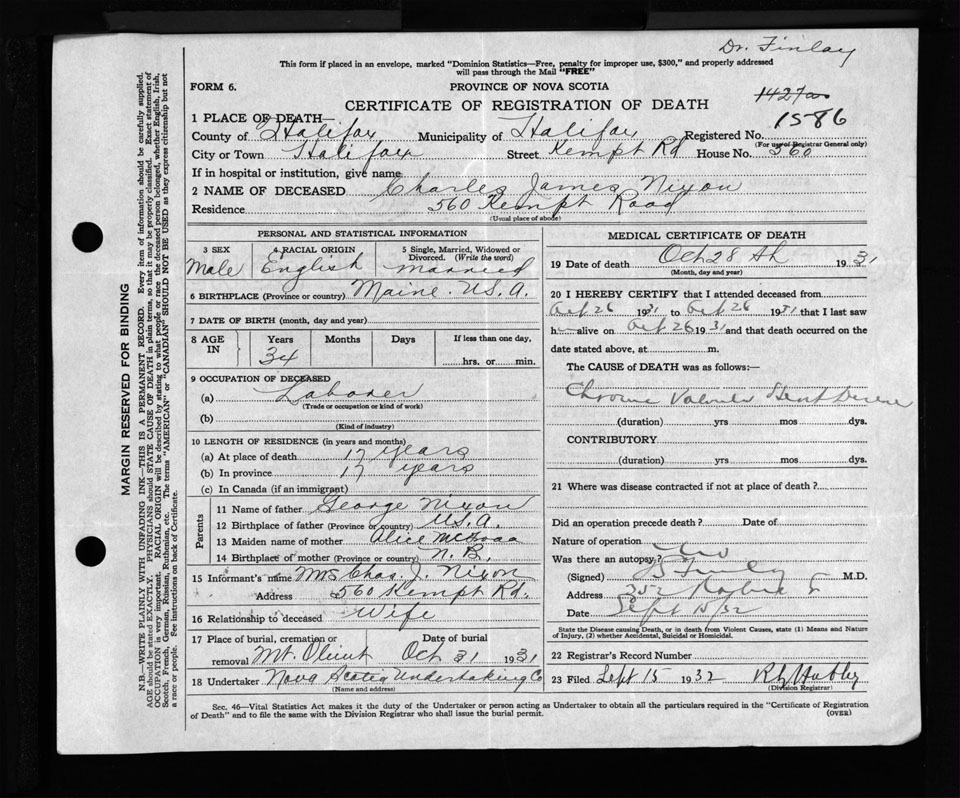 Dr. Finlay
This form if placed in an envelope, marked "Dominion Statistics—Free, penalty for improper use, $300," and properly addressed
will pass through the Mail "FREE"
FORM 6.
PROVINCE OF NOVA SCOTIA
CERTIFICATE OF REGISTRATION OF DEATH
1586
1 PLACE OF DEATH—
County of Halifax Municipality of Halifax Registered No.
(For use of Registrar General only)
City or Town Halifax Street Kempt Rd House No. 560
If in hospital or institution, give name
2 NAME OF DECEASED Charles James Nixon
Residence 560 Kempt Road
(Usual place of abode)
PERSONAL AND STATISTICAL INFORMATION
3 SEX
Male
4 RACIAL ORIGIN
English
5 Single, Married, Widowed or
Divorced. (Write the word)
Married
6 BIRTHPLACE (Province or country) Maine. U.S.A.
7 DATE OF BIRTH (month, day and year)
8 AGE
IN
Years
34
Months
Days
If less than one day,
hrs. or min.
9 OCCUPATION OF DECEASED
(a) Laborer
(Trade or occupation or kind of work)
(b)
(Kind of industry)
10 LENGTH OF RESIDENCE (in years and months)
(a) At place of death 17 years
(b) In province 17 years
(c) In Canada (if an immigrant)
Parents
11 Name of father George Nixon
12 Birthplace of father (Province or country) U.S.A.
13 Maiden name of mother Alice
14 Birthplace of mother (Province or country) N.B.
15 Informant's name Mrs Chas. J. Nixon
Address 560 Kempt Rd.
16 Relationship to deceased Wife
17 Place of burial, cremation or
removal Mt. Olivet
Date of burial
Oct 31 1931
18 Undertaker Nova Scotia Undertaking Co
(Name and address)
MEDICAL CERTIFICATE OF DEATH
19 Date of death Oct 28 th 1931
(Month, day and year)
20 I HEREBY CERTIFY that I attended deceased from
Oct 26 1931 to Oct 26 1931 that I last saw
h alive on Oct 26 1931 and that death occurred on the
date stated above, at m.
The CAUSE of DEATH was as follows:—
Chronic Valvular Heart Disease
(duration) yrs mos dys.
CONTRIBUTORY
(duration) yrs mos dys.
21 Where was disease contracted if not at place of death?
Did an operation precede death? Date of
Nature of operation
Was there an autopsy? No
(Signed) Finlay M.D.
Address 352
Date Sept 15/32
State the Disease causing Death, or in death from Violent Causes, state (1) Means and Nature
of Injury, (2) whether Accidental, Suicidal or Homicidal.
22 Registrar's Record Number
23 Filed Sept 15 1932
(Division Registrar)
Sec. 46—Vital Statistics Act makes it the duty of the Undertaker or person acting as Undertaker to obtain all the particulars required in the "Certificate of Registration
of Death" and to file the same with the Division Registrar who shall issue the burial permit.
(OVER)
MARGIN RESERVED FOR BINDING
N.B.—WRITE PLAINLY WITH UNFADING INK—THIS IS A PERMANENT RECORD. Every item of information should be carefully supplied.
AGE should be stated EXACTLY. PHYSICIANS should STATE CAUSE OF DEATH in plain terms, so that it may be properly classified. Exact statement of
OCCUPATION is very important. RACIAL ORIGIN will be described by stating to what people or race the deceased person belonged, whether English, Irish,
Scotch, French, German, Russian, Ruthenian, etc. The terms "AMERICAN" or "CANADIAN" SHOULD NOT BE USED as they express citizenship but not
a race or people. See instructions on back of Certificate.